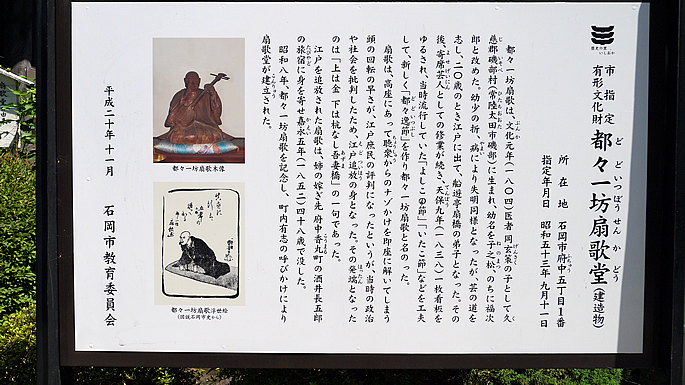 歴史の里
いしおか
市指定
有形文化財
都々一坊扇歌堂(建造物)
ど どいつぼう せん か どう
所在地 石岡市府中五丁目1番
指定年月日 昭和五十三年九月十一日
都々一坊扇歌は、文化元年(一八〇四)医者 岡玄策の子として久
慈郡磯部村(常陸太田市磯部)に生まれ、幼名を子之松、のちに福次
郎と改めた。幼少の折、病により失明同様となったが、芸の道を
志し、二〇歳のとき江戸に出て、船遊亭扇橋の弟子となった。その
後、寄席芸人としての修業が続き、天保九年(一八三八)一枚看板を
ゆるされ、当時流行していた「よしこの節」「いたこ節」などを工夫
して、新しく「都々逸節」を作り都々一坊扇歌と名のった。
扇歌は、高座にあって聴衆からのナゾかけを即座に解いてしまう
頭の回転の早さが、江戸庶民の評判になったというが、当時の政治
や社会を批判したため、江戸追放の身となった。その発端となった
のは「上は金 下は杭なし吾妻橋」の一句であった。
江戸を追放された扇歌は、姉の嫁ぎ先 府中香丸町の酒井長五郎
の旅宿に身を寄せ嘉永五年(一八五二)四十八歳で没した。
昭和八年、都々一坊扇歌を記念し、町内有志の呼びかけにより
扇歌堂が建立された。
都々一坊扇歌木像
都々一坊扇歌浮世絵
(図説石岡市史から)
平成二十年十一月 石岡市教育委員会